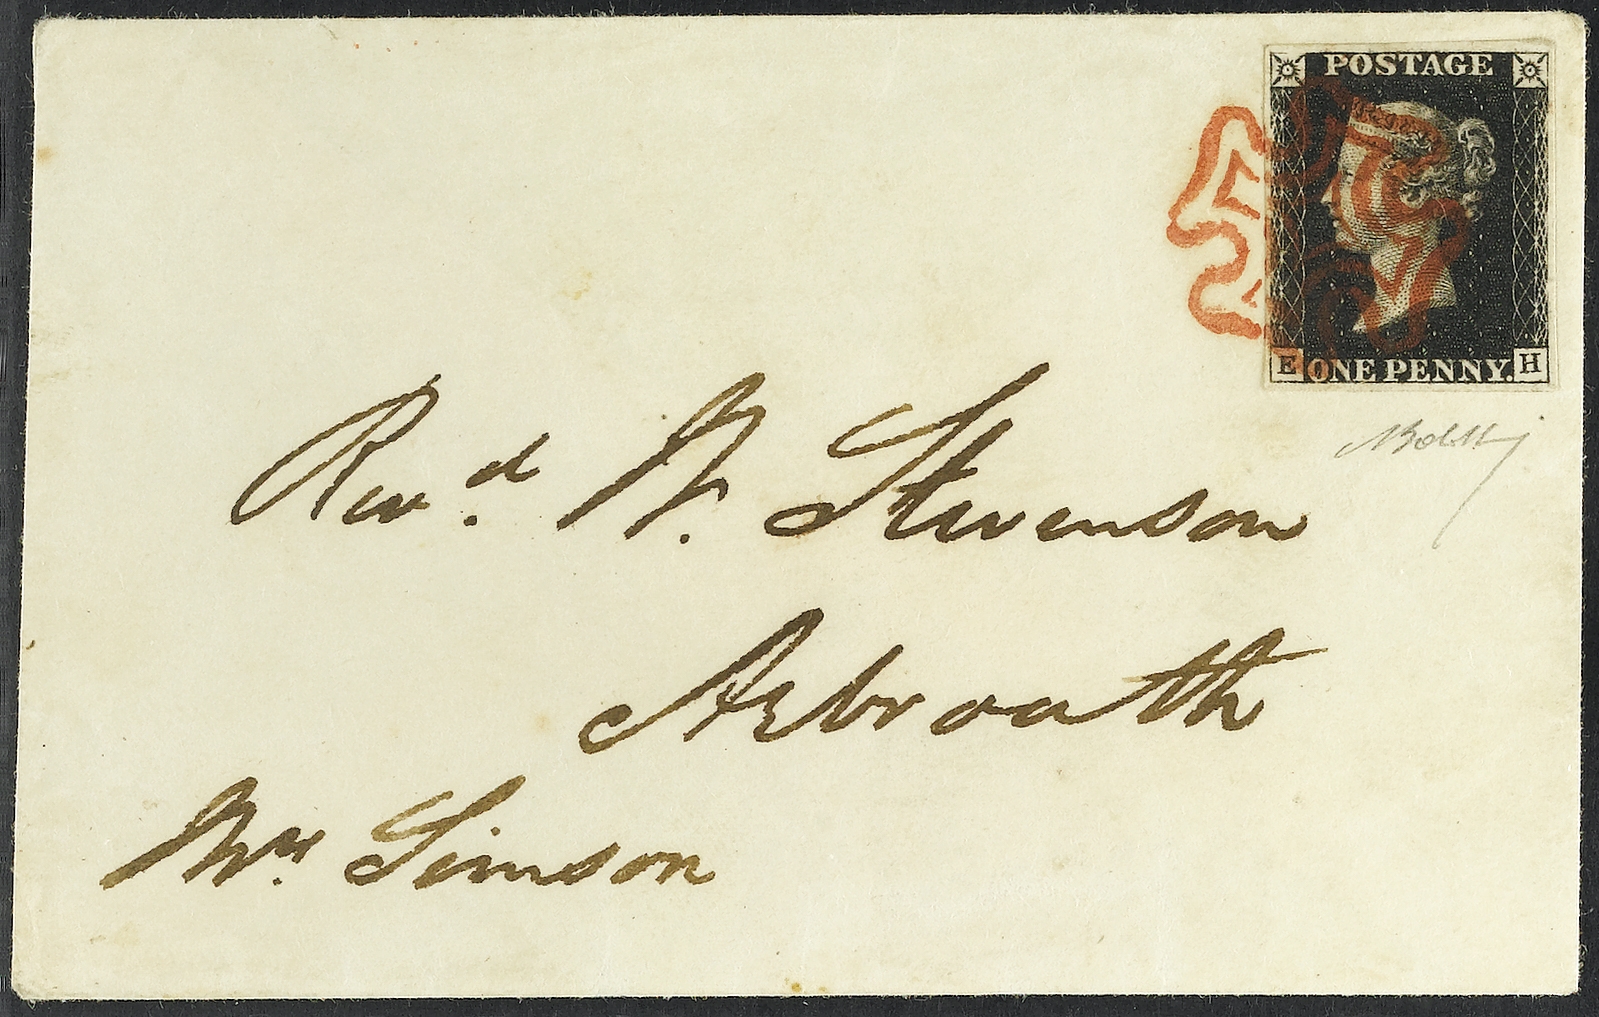 POSTAGE
E ONE PENNY. H
Revd. W. Stevenson
Arbroath
Simson